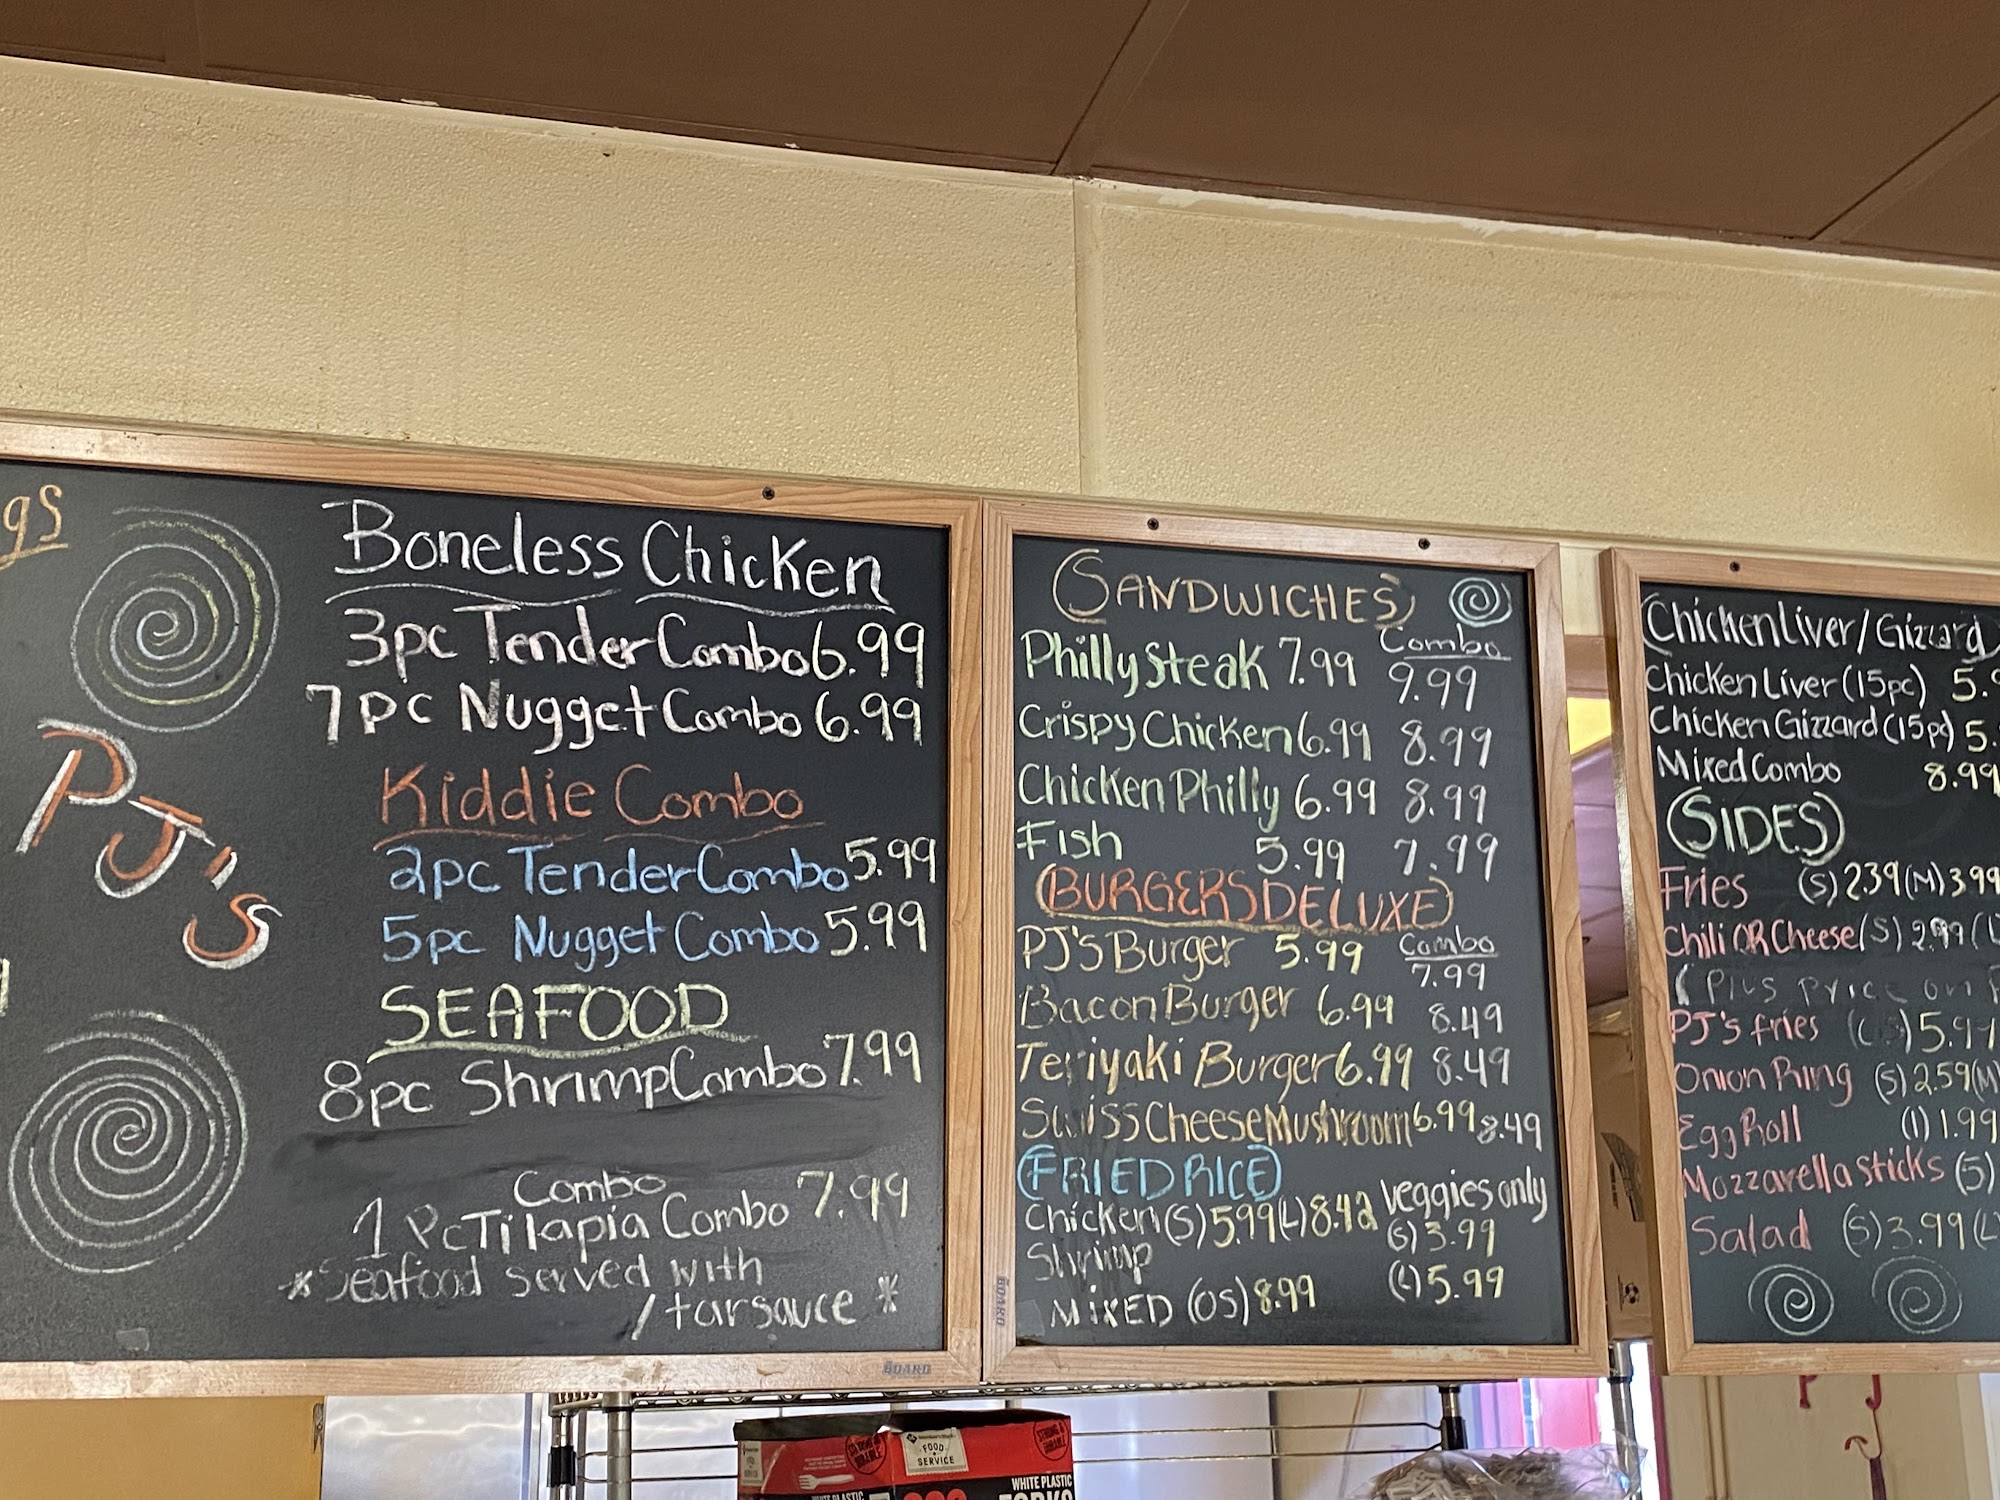 gs
PJ's
Boneless Chicken
3pc Tender Combo 6.99
7pc Nugget Combo 6.99
Kiddie Combo
2pc Tender Combo 5.99
5pc Nugget Combo 5.99
SEAFOOD
8pc Shrimp Combo 7.99
Combo
1 Pc Tilapia Combo 7.99
*Seafood served with
/tarsauce *
BOARD
(SANDWICHES)
Combo
Philly Steak 7.99 9.99
Crispy Chicken 6.99 8.99
Chicken Philly 6.99 8.99
Fish 5.99 7.99
(BURGERS DELUXE)
Combo
PJ's Burger 5.99 7.99
Bacon Burger 6.99 8.49
Teriyaki Burger 6.99 8.49
Swiss Cheese Mushroom 6.99 8.49
(FRIED RICE)
Veggies only
Chicken (S) 5.99 (L) 8.42
(S) 3.99
Shrimp
(L) 5.99
MIXED (OS) 8.99
BOARD
(Chicken Liver/Gizzard)
Chicken Liver (15pc) 5.9
Chicken Gizzard (15pc) 5.
Mixed Combo 8.99
(SIDES)
Fries (S) 2.39 (M) 3.99
Chili OR Cheese (S) 2.99 (L
(Plus price on F
PJ's fries 5.99
Onion Ring (S) 2.59 (M)
Egg Roll (1) 1.99
Mozzarella Sticks (5)
Salad (S) 3.99 (L
P J
J
FOOD
SERVICE
STRONG &
DURABLE
WHITE PLASTIC
FORKS
WHITE PLASTIC